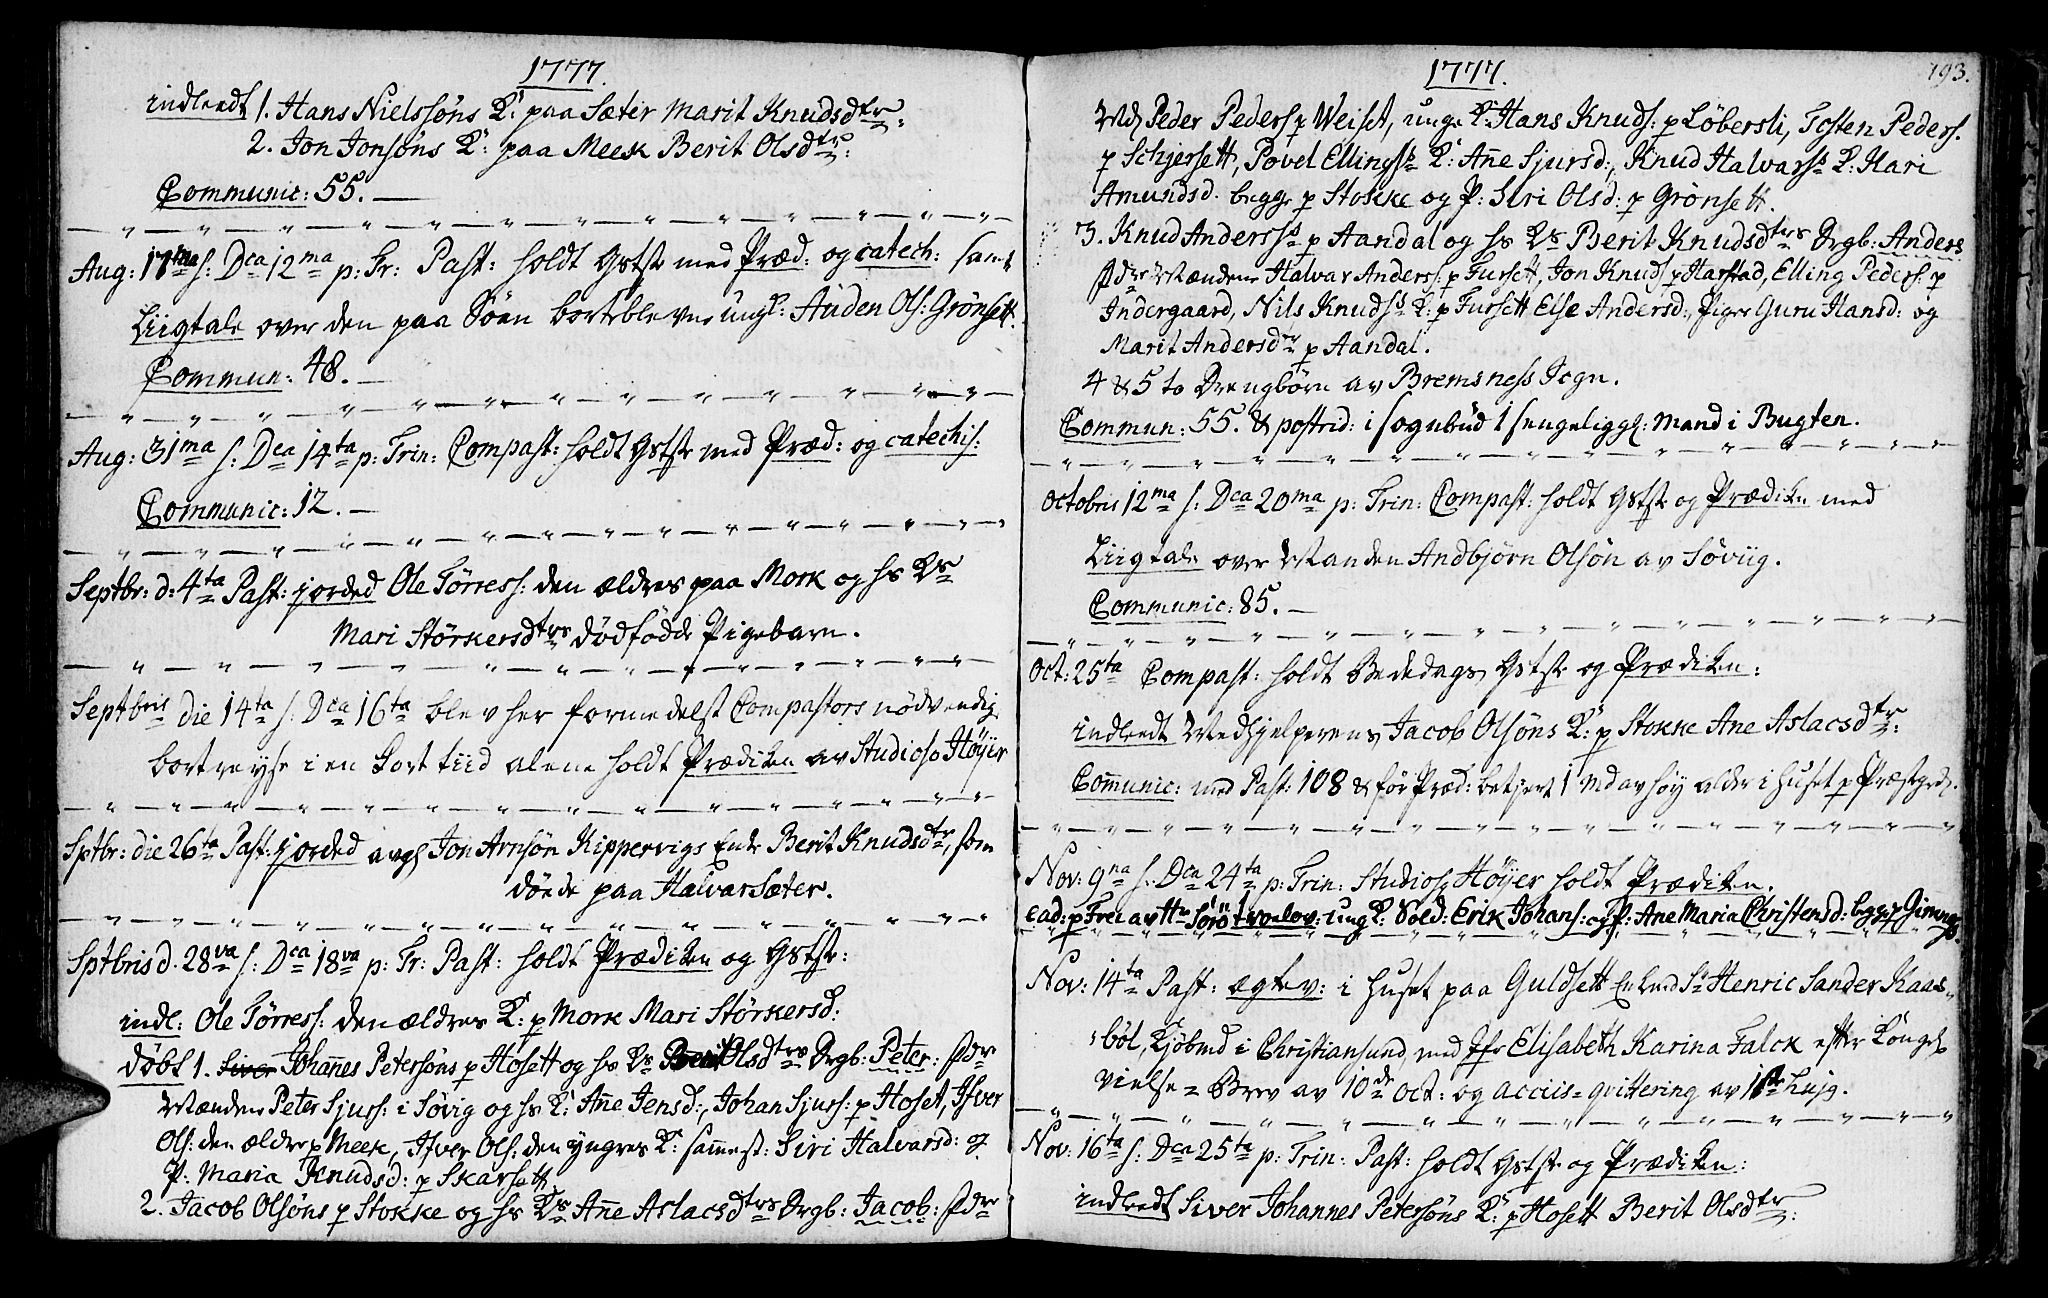 1777.
indleedt 1. Hans Nielssøns K: paa Sæter Marit Knudsdtr:
2. Jon Jonsøns K: paa Meek Berit Olsdtr:
Communic: 55. —
Aug: 17ma s: Dca 12ma p: Tr: Past: holdt Gstste med Præd: og catech: samt
Liigtale over den paa Søen bortblevne ungk: Auden Ols: Grønsett.
Commun: 48. —
Aug: 31ma s: Dca 14ta p: Trin: Compast: holdt Gstste med Præd: og catechis:
Communic: 12. —
Septbr: d: 4ta Past: jorded Ole Tørress: den ældres paa Mork og hs Ks
Mari Størkersdtrs dødfødde Pigebarn.
Septbris die 14ta s: Dca 16ta blev her formedelst Compastors nødvendige
bortreyse i en Kort tiid alene holdt Prædiken av Studioso Høyer
Sptbr: die 26ta Past: jorded avgl Jon Arnsøn Kippervigs Enke Berit Knudsdtr, som
døede paa Halvarsæter.
Sptbris d. 28va s: Dca 18va p: Tr: Past: holdt Prædiken og Gstste:
indl: Ole Tørress: den ældres K: p Mork Mari Størkersd:
døbt 1. Siver Johannes Petersøns p Hosett og hs Ks Berit Olsdtrs Drgb: Peter: Fdre
Mændene Peter Sjurs: i Søvig og hs K: Anne Jensd:, Johan Sjurs: p Hoset, Ifver
Ols: den ældre p Meek, Ifver Ols: den yngres K: sammest: Siri Halvarsd: og
P: Maria Knudsd: p Skarsett.
2. Jacob Olsøns p Stokke og hs Ks Anne Aslacsdtrs Drgb: Jacob: Fdre
1777.
193.
Md Peder Peders p Weiset, unge K: Hans Knuds: p Løbersli, Tosten Peders:
p Schjersett, Povel Ellingss K: Anne Sjursd:, Knud Halvarss K: Kari
Amundsd. begge p Stokke og P: Siri Olsd: p Grønsett.
3. Knud Anderss p Aandal og hs Ks Berit Knudsdtrs Drgb: Anders
Fdre Mændene Halvar Anderss: p Fursett, Jon Knuds p Harstad, Elling Peders: p
Indergaard, Nils Knudss K: p Fursett Else Andersd:, Piger Guru Hansd: og
Marit Andersdtr p Aandal.
4 & 5 to Drengbørn av Bremsness Sogn.
Commun: 55. & postrid: i sognebud 1 sengeliggl: Mand i Bugten.
Octobris 12ma s: Dca 20ma p: Trin: Compast: holdt Gstste og Prædiken med
Liigtale over Manden Andbjørn Olsøn av Søviig.
Communic: 85. —
Oct: 25ta Compast: holdt Bededags Gstste og Prædiken:
indleedt Medhjelperens Jacob Olsøns K: p Stokke Ane Aslacsdtr:
Communic: med Past: 108 & før Præd: betjent 1 Md av høy alder i huset p Præstgrd.
Nov: 9na s: Dca 24ta p: Trin: Studios Høyer holdt Prædiken.
ead: p Frei av Hr Sørø trolov: ungk: Sold: Erik Johans: og P: Ane Maria Christensd: begge p Gimnes.
Nov: 14ta Past: ægtev: i huset paa Guldsett Sr Henric Sander Kaas-
bøl, Kjøbmd i Christiansund, med Jfr Elisabeth Karina Falck efter Kongel
Vielse = Brev av 10de Oct: og acciis = qvittering av 1ste hujg.
Nov: 16ta s: Dca 25ta p: Trin: Past: holdt Gstste og Prædiken:
indleedt Siver Johannes Petersøns K: p Hosett Berit Olsdtr: